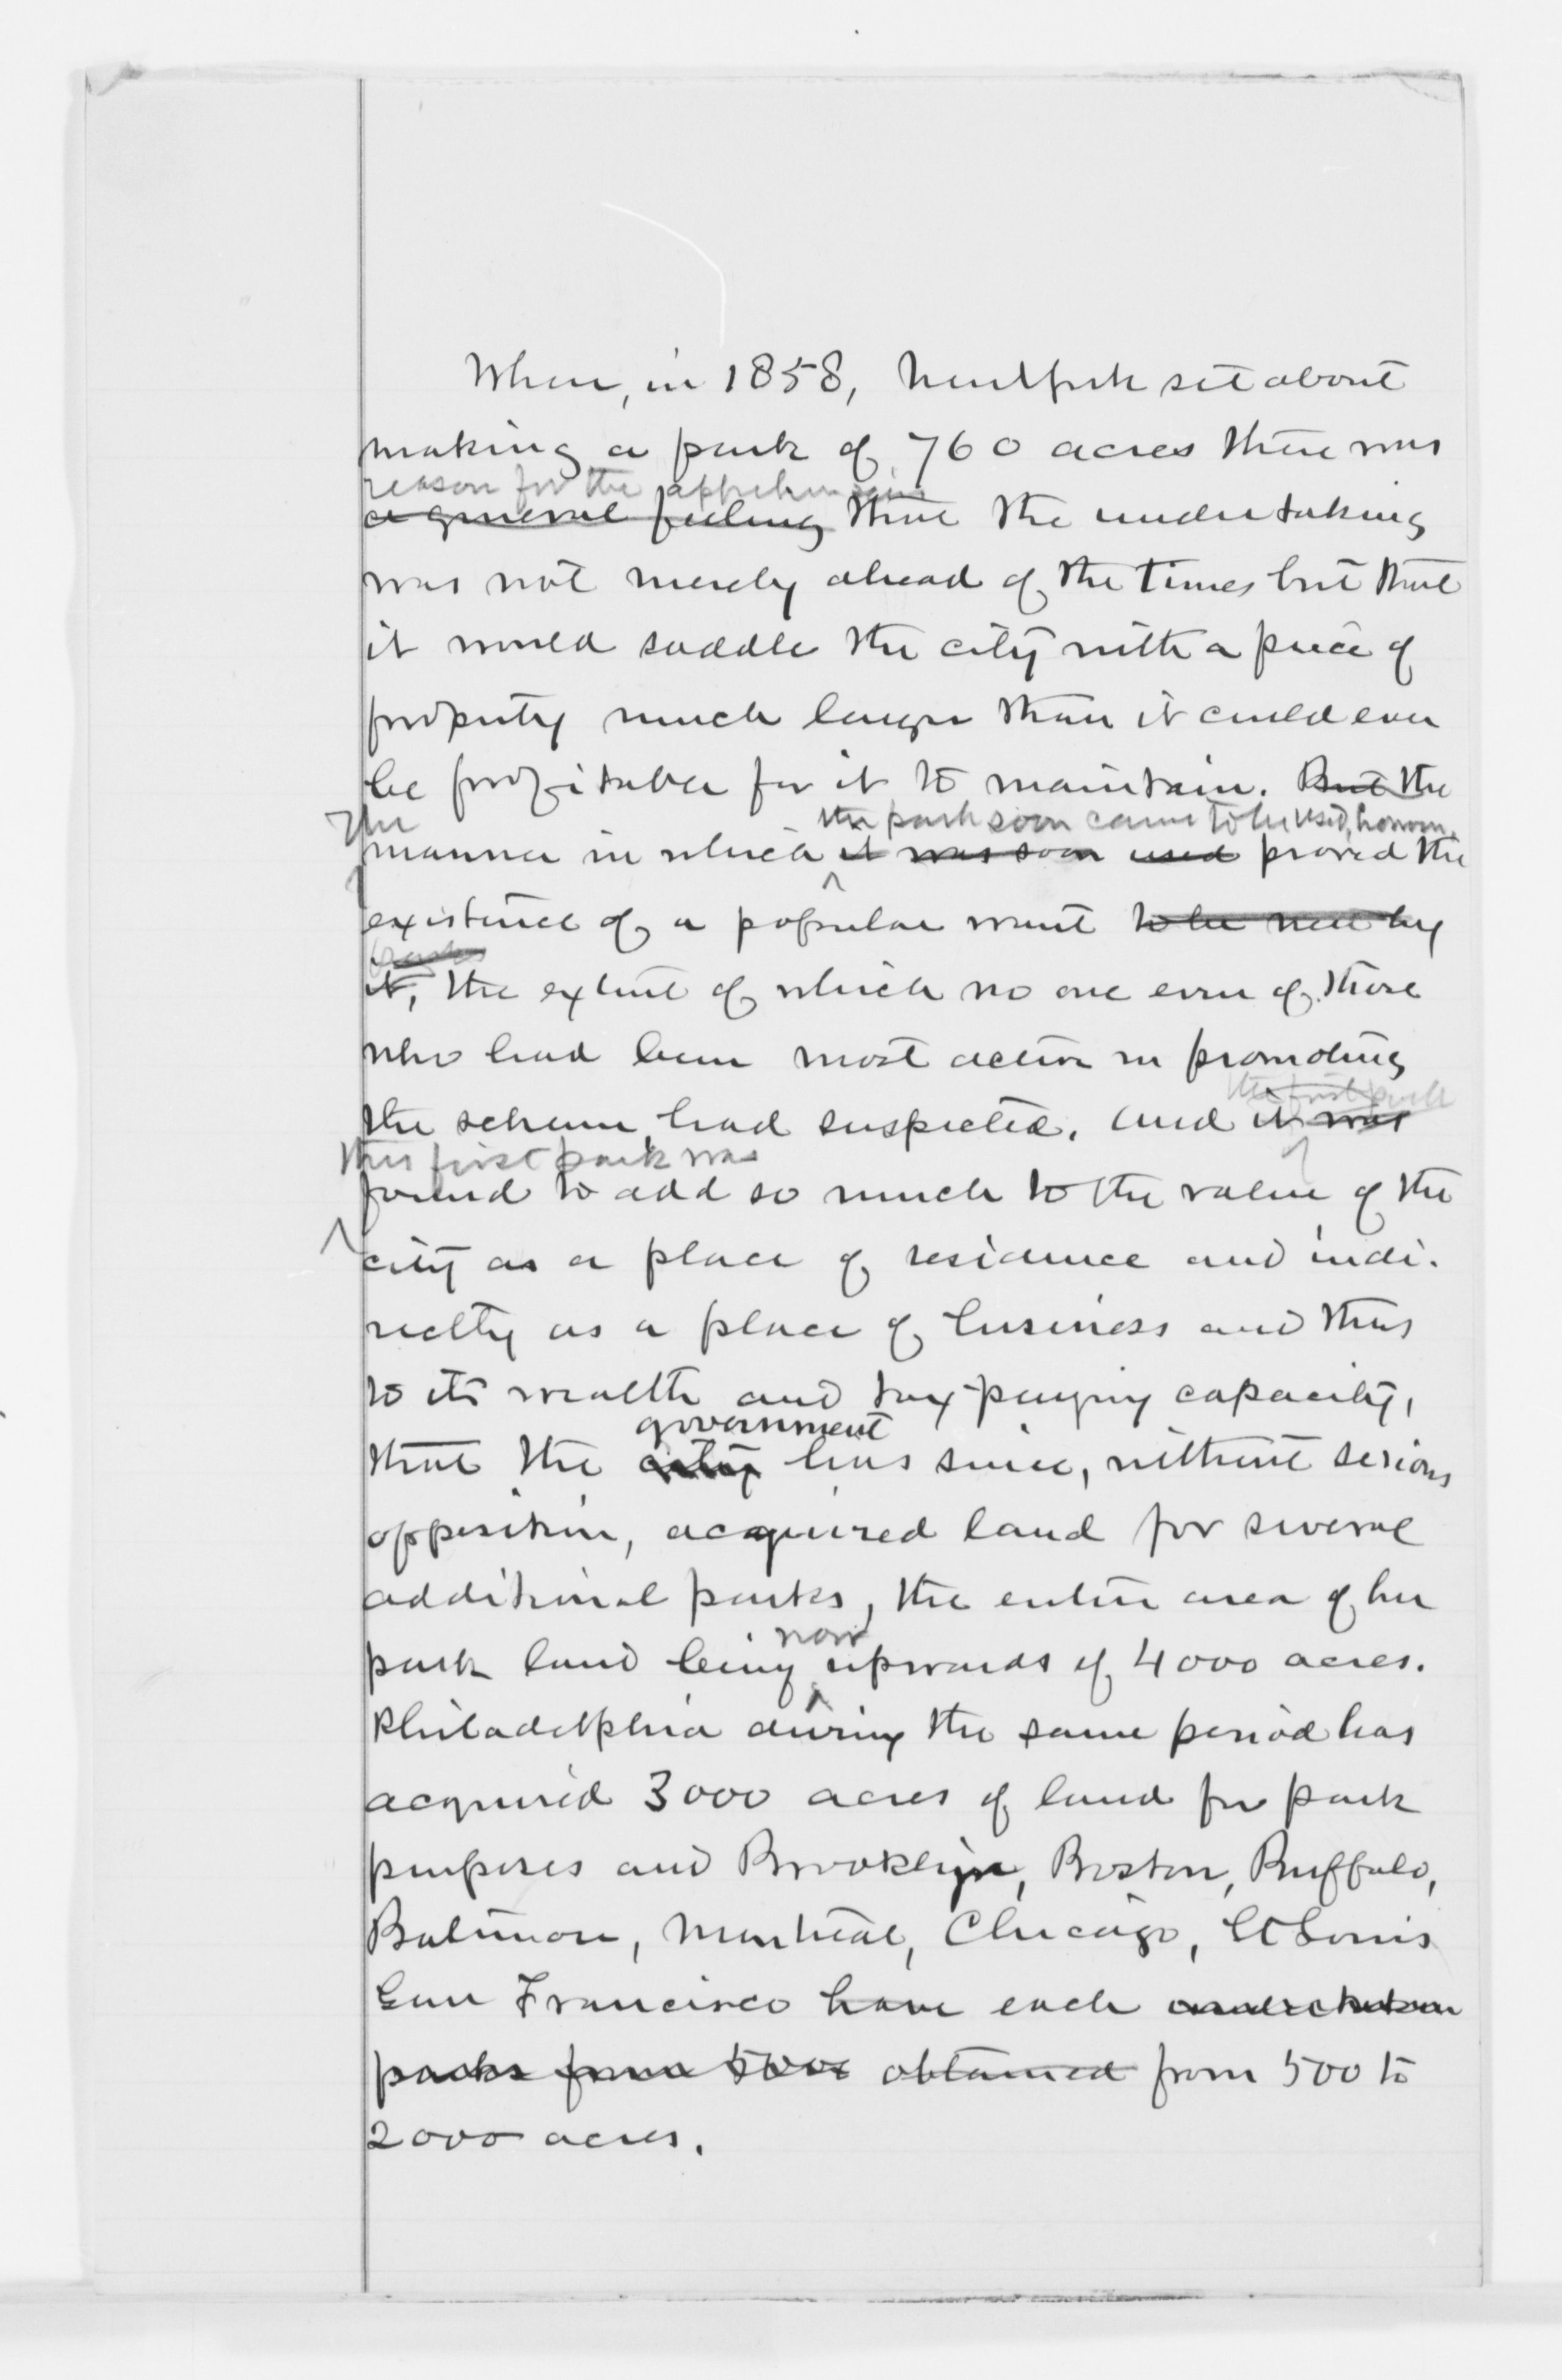 When, in 1858, New York set about
making a park of 760 acres there was
reason for the apprehension
a general feeling that the undertaking
was not merely ahead of the times but that
it would saddle the city with a piece of
property much larger than it could ever
be profitable for it to maintain. But the
The
the park soon came to be used, however,
manner in which it was soon used proved the
existence of a popular want to be met by
parks
it, the extent of which no one even of those
who had been most active in promoting
the first park
the scheme had suspected, and it was
this first park was
found to add so much to the value of the
city as a place of residence and indi-
rectly as a place of business and thus
to its wealth and tax-paying capacity,
government
that the city has since, without serious
opposition, acquired land for several
additional parks, the entire area of her
now
park land being upwards of 4000 acres.
Philadelphia during the same period has
acquired 3000 acres of land for park
purposes and Brooklyn, Boston, Buffalo,
Baltimore, Montreal, Chicago, St Louis
San Francisco have each undertaken
parks from 500 obtained from 500 to
2000 acres.